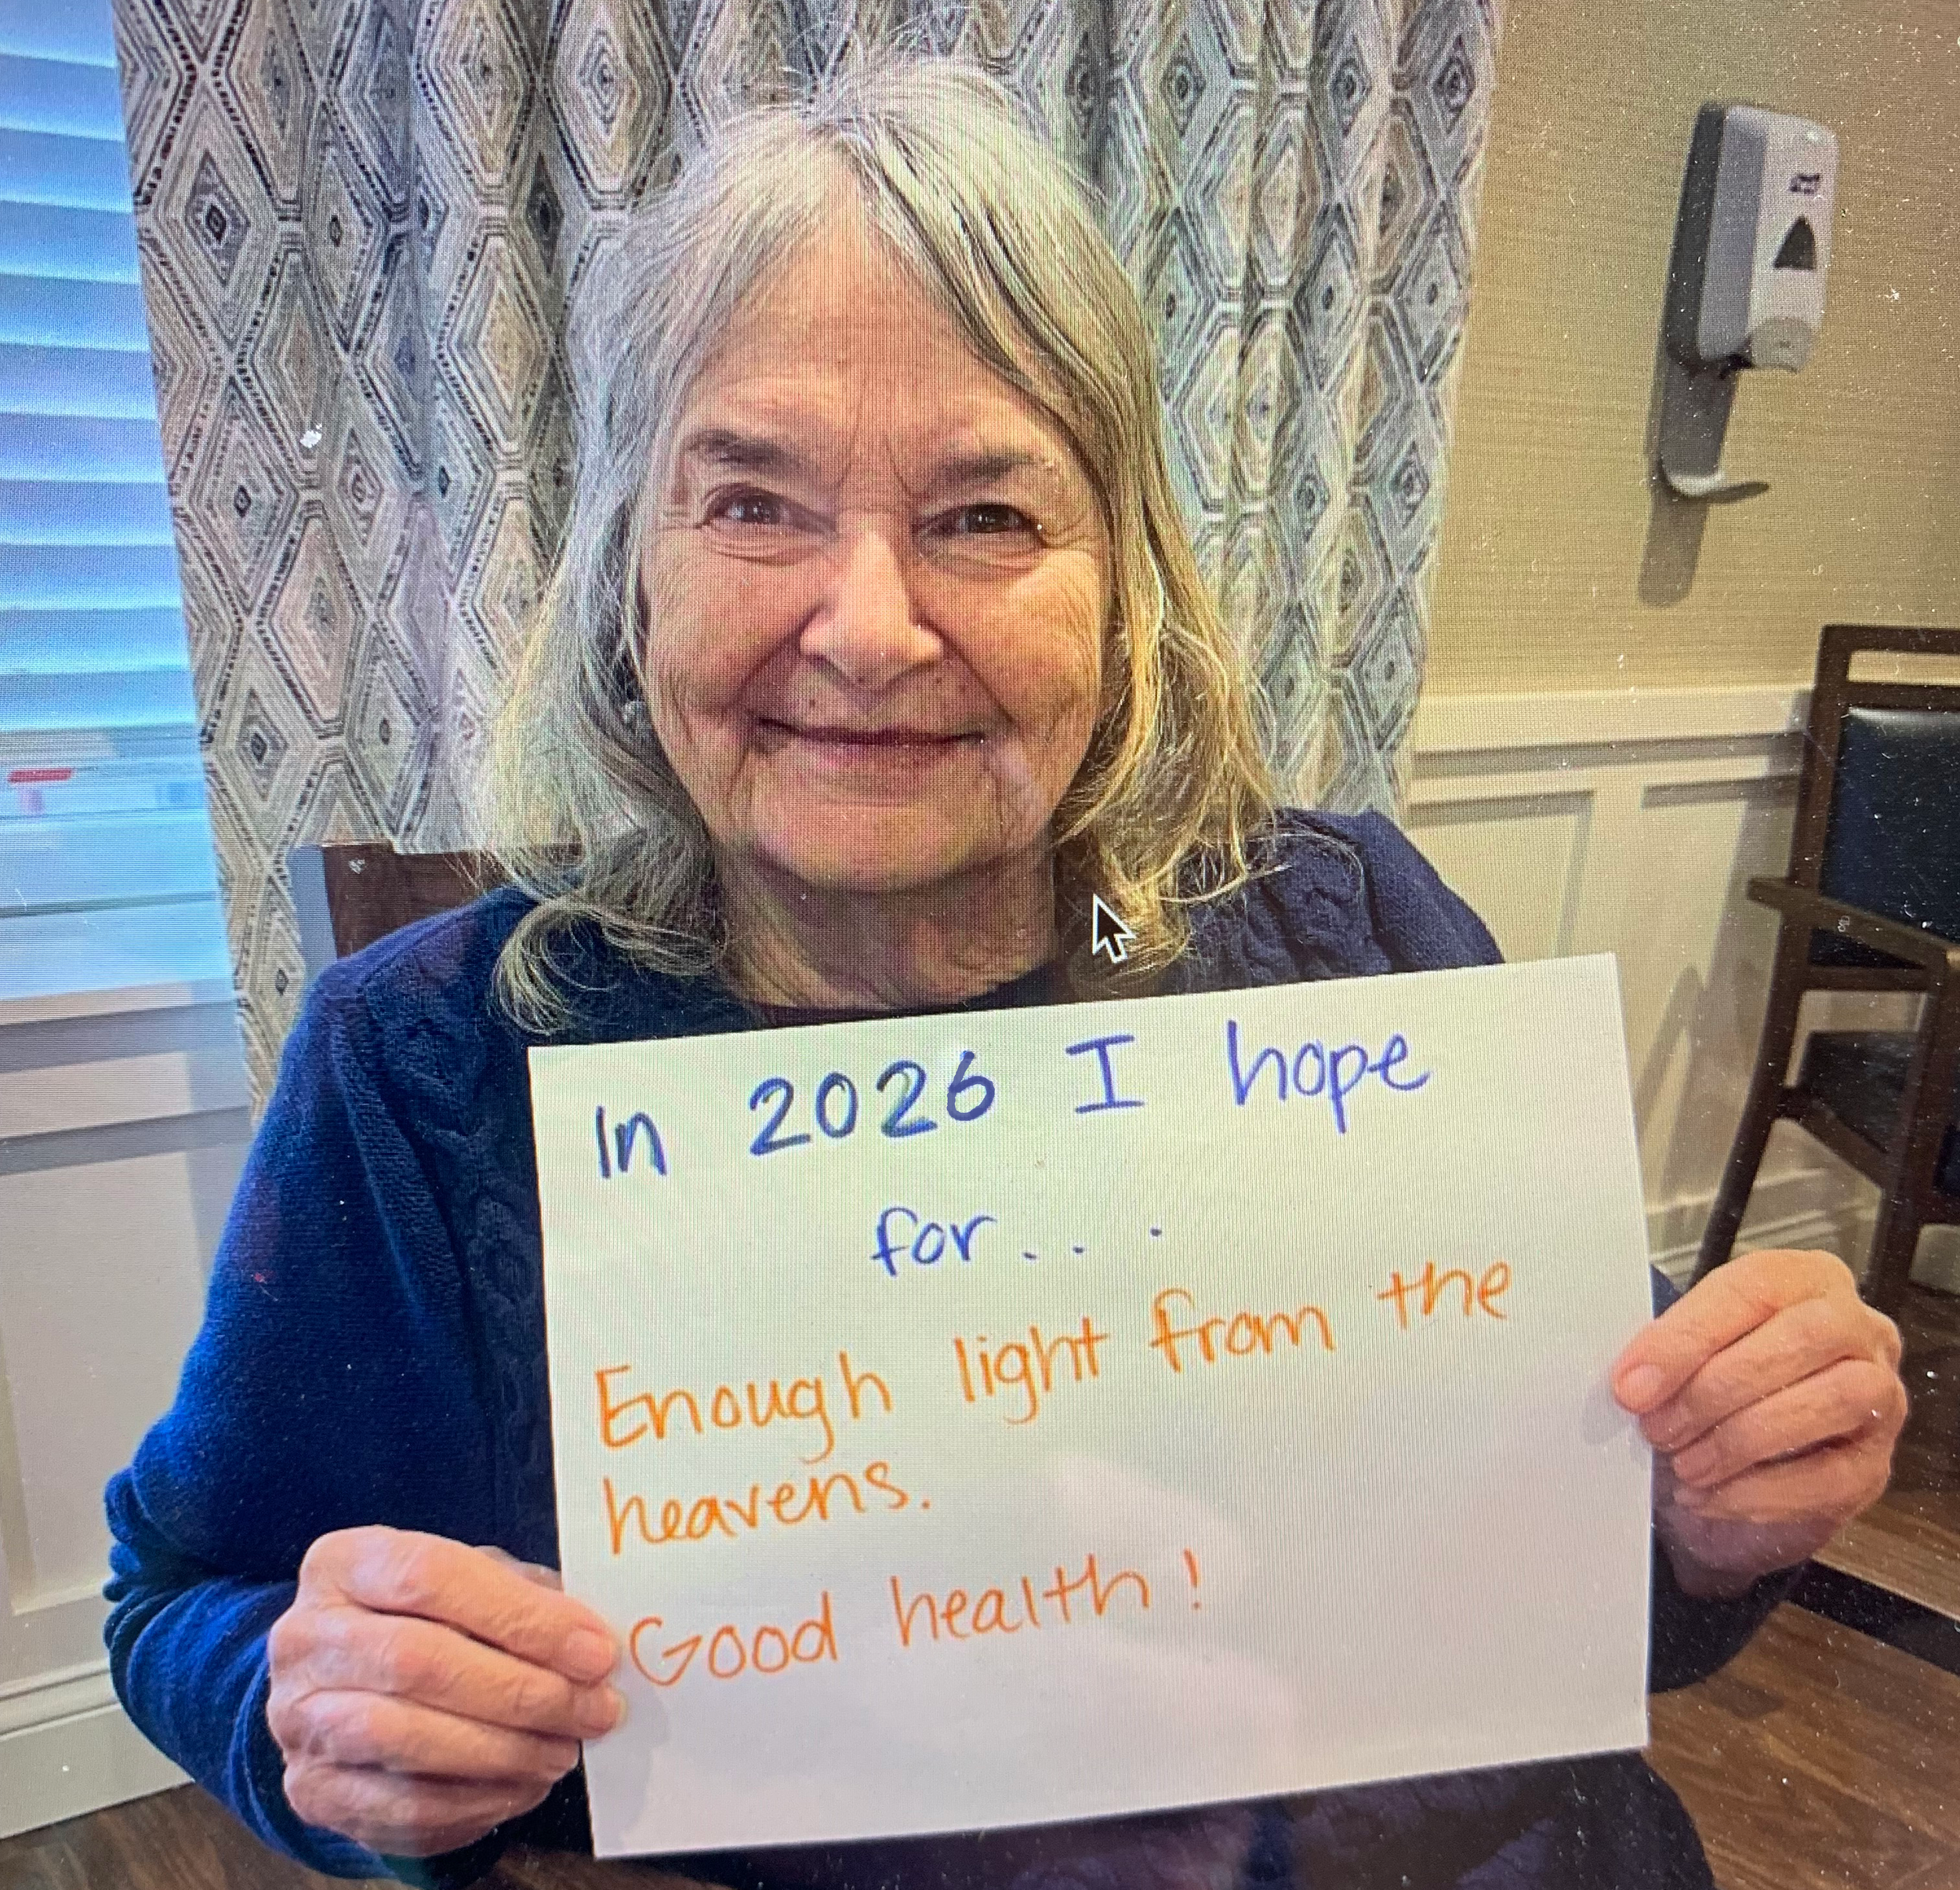 In 2026 I hope
for. . .
Enough light from the
heavens.
Good health!